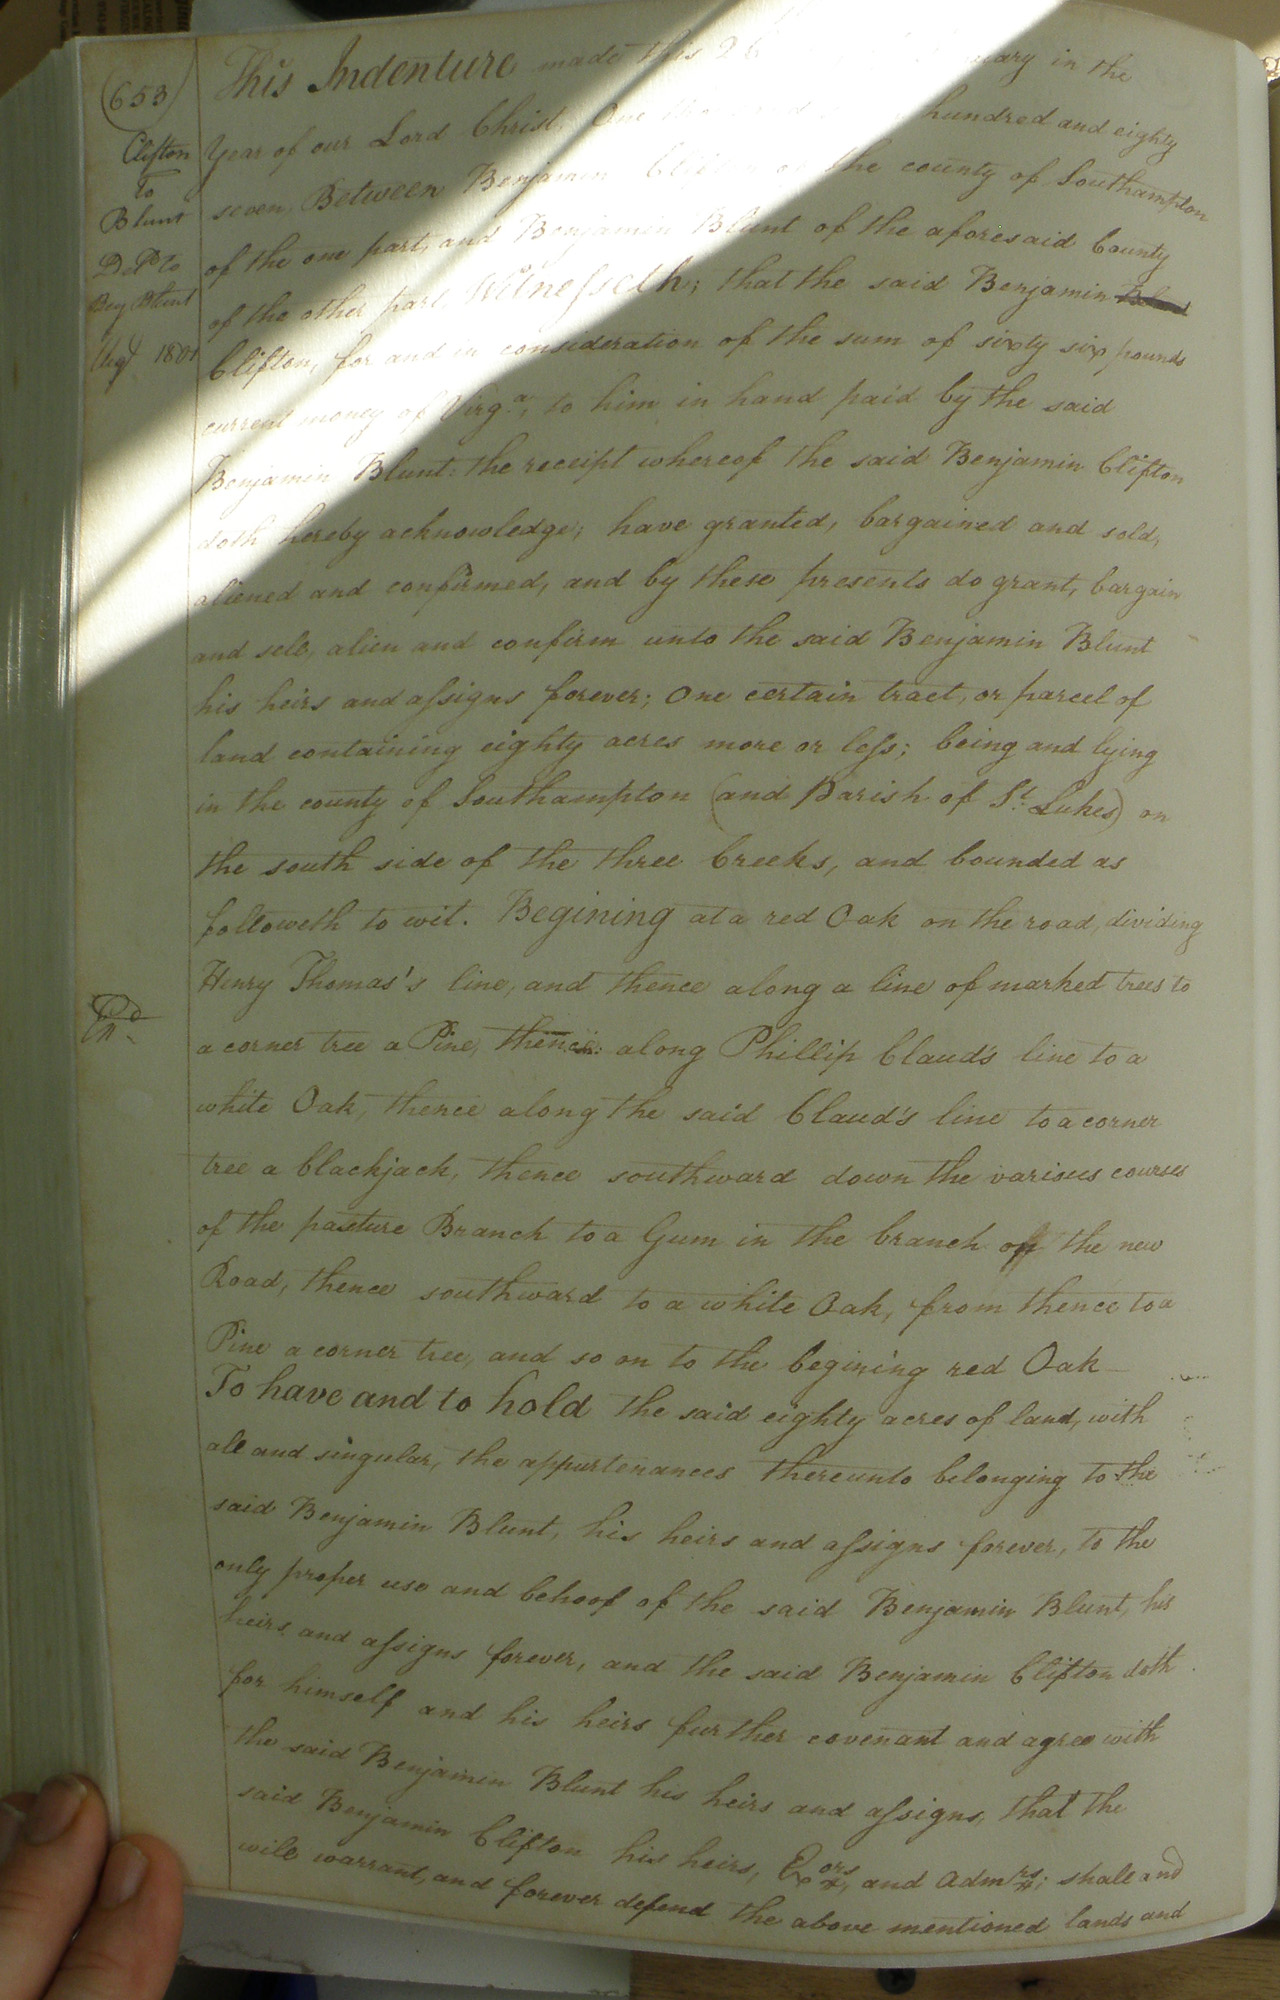 (653)
Clifton
To
Blunt
Deld to
Benj Blunt
Augt 1801
Exd
This Indenture made this 26 in the
Year of our Lord Christ. One hundred and eighty
seven, Between Benjamin Clifton of the county of Southampton
of the one part, and Benjamin Blunt of the aforesaid County
of the other part Witnesseth; that the said Benjamin
Clifton, for and in consideration of the sum of sixty six pounds
current money of Virga, to him in hand paid by the said
Benjamin Blunt: the receipt whereof the said Benjamin Clifton
doth hereby acknowledge; have granted, bargained and sold,
aliened and confirmed, and by these presents do grant, bargain
and sell, alien and confirm unto the said Benjamin Blunt
his heirs and assigns forever; One certain tract, or parcel of
land containing eighty acres more or less; being and lying
in the county of Southampton (and Parish of St. Lukes) on
the south side of the three Creeks, and bounded as
followeth to wit. Begining at a red Oak on the road, dividing
Henry Thomas's line, and thence along a line of marked trees to
a corner tree a Pine, thence: along Phillip Claud's line to a
white Oak, thence along the said Claud's line to a corner
tree a blackjack, thence southward down the various courses
of the pasture Branch to a Gum in the branch off the new
Road, thence southward to a white Oak, from thence to a
Pine a corner tree, and so on to the begining red Oak
To have and to hold the said eighty acres of land, with
all and singular, the appurtenances thereunto belonging to the
said Benjamin Blunt, his heirs and assigns forever, to the
only proper use and behoof of the said Benjamin Blunt, his
heirs and assigns forever, and the said Benjamin Clifton doth
for himself and his heirs further covenant and agree with
the said Benjamin Blunt his heirs and assigns, that the
said Benjamin Clifton his heirs, Exors, and Admrs; shall and
will warrant, and forever defend the above mentioned lands and